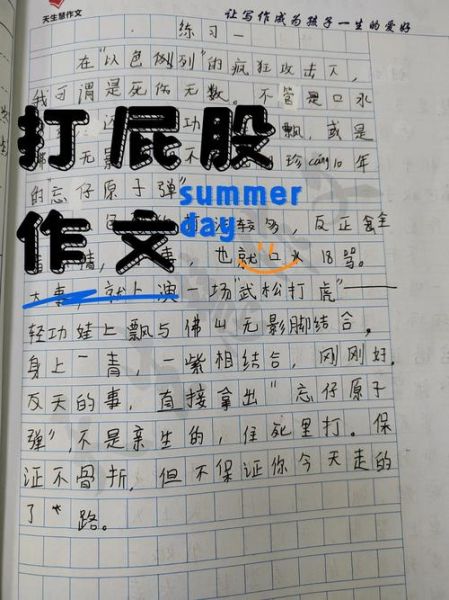 天生慧作文
让写作成为孩子一生的爱好
练习一
在"以色列"的疯狂攻击下,
我可谓是死伤无数。不管是口水
功 飘,或是
无影 不 珍cáng10年
的"忘仔原子弹"
打屁股
作文
summer
day
较多,反正
事,也就口水18骂。
大事,就上演一场"武松打虎"——
轻功娃上飘与佛山无影脚结合。
身上一青,一紫相结合,刚刚好。
反天的事,直接拿出"忘仔原子
弹",不是亲生的,往死里打。保
证不骨折,但不保证你今天走的
了 路。